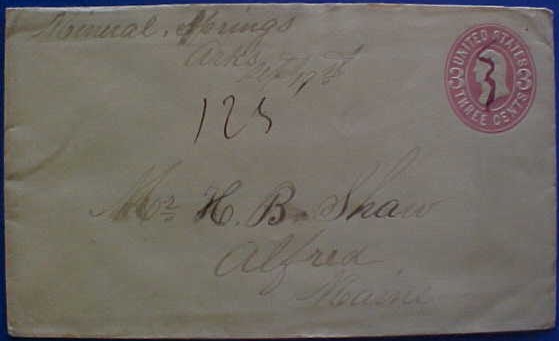 Mineral Springs
Arks
Sept 17th
UNITED STATES
3 3
THREE CENTS
3
125
Mr H. B. Shaw
Alfred
Maine